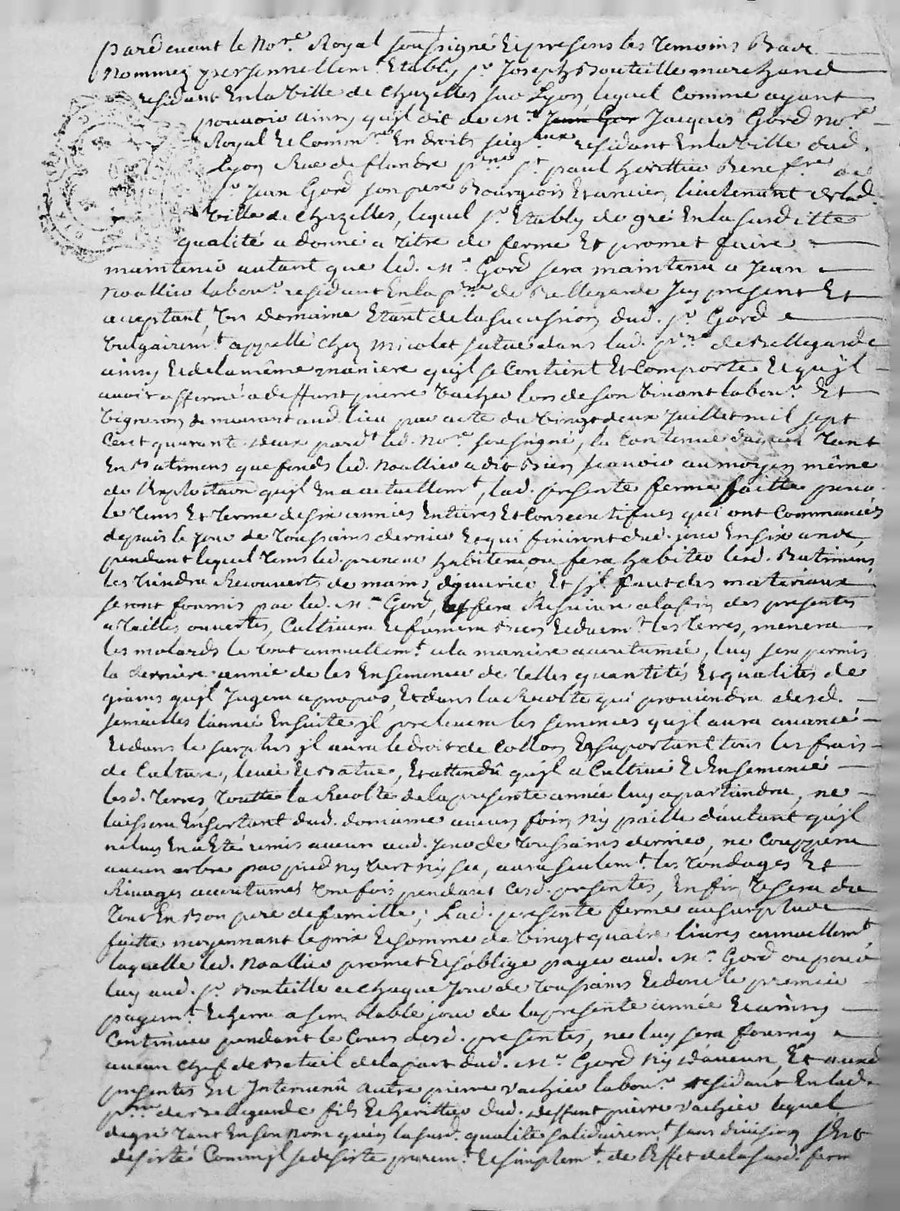 pardevant le No.re Royal soussigné Et presens les temoins Bas
Nommez personnellem.t Etably s.r Joseph Bouteille marchand
residant En la ville de Chazelles sur Lyon, lequel comme ayant
pouvoir ainsy qu'jl dit de M.e Jacques Gord No.re
Royal Et Comm.re En droits seig.aux residant En la ville dud.
Lyon Rue de flandre p.sse S.t paul heritier Benef.re de
s.r Jean Gord son pere Bourgeois Et ancien lieutenant de lad.
ville de Chazelles, lequel s.r Etably de gré En la susditte
qualité a donné a titre de ferme Et promet faire
maintenir autant que led. M.e Gord sera maintenu a Jean
Noallier labou.r residant En la p.sse de Bellegarde Jcy present Et
acceptant, Un domaine Etant de la succession dud. s.r Gord
Vulgairem.t appellé chez Micolet situé dans lad. p.sse de Bellegarde
ainsy Et de la même maniere qu'jl se Contient Et Comporte Et qu'jl
avoit affermé a deffunt pierre Vachier lors de son vivant labou.r Et
Vigneron demeurant aud. lieu par acte du vingt deux Juillet mil sept
Cent quarante deux pard.t led. No.re soussigné, la Contenue duquel tant
En Batimens que fonds led. Noallier a dit Bien scavoir au moyen même
de l'Exploitaon qu'jl En a actuellem.t, lad. presente ferme faitte pour
le tems Et terme de six années Entieres Et Consecutifves qui ont Commancés
depuis le jour de Toussains dernier Et qui finiront dud. jour En six ans,
pendant lequel tems led. preneur habitera ou fera habiter lesd. Batimens,
les tiendra Recouverts de mains d'ouvrier Et s'jl faut des materiaux
seront fournis par led. M.e Gord, a la fin des presentes
a tailles ouvertes, Cultivera Et fumera Bien Et duem.t les terres, menera
les molards le tout annuellem.t a la maniere accoutumée, luy sera permis
la derniere année de les Ensemencer de telles quantités Et qualités de
grains qu'jl Jugera a propos, Et dans la Recolte qui proviendra desd.
semailles l'année Ensuite jl prelevera les semences qu'jl aura avancé
Et dans le surplus jl aura le droit de Collon En suportant tous les frais
de Culture, levée Et Battue, Et attendu qu'jl a Cultivé Et Ensemencé
lesd. terres, toutte la Recolte de la presente année luy apartiendra, ne
laissera En sortant dud. domaine aucun foin ny paille d'autant qu'jl
ne luy En a Eté remis aucun aud. jour de Toussains dernier, ne Couppera
aucun arbre par pied ny vert ny sec, aura seulem.t les tondages Et
Rivages accoutumés une fois pendant lesd. presentes, Enfin usera du
tout En Bon pere de famille; Lad. presente ferme au surplus
faitte moyennant le prix Et somme de vingt quatre livres annuellem.t
laquelle led. Noallier promet Et s'oblige payer aud. M.e Gord ou pour
luy aud. s.r Bouteille a chaque jour de Toussains Et dont le premier
payem.t Echerra a semblable jour de la presente année Et ainsy
Continuer pendant le Cours desd. presentes, ne luy sera fourny
aucun Chef de Betail de la part dud. M.e Gord ny d'aucun, Et auxd.
presentes Est Intervenû autre pierre Vachier labou.r residant En lad.
p.sse de Bellegarde fils Et heritier dud. deffunt pierre Vachier lequel
de gré tant En son nom qu'en la susd. qualité solidairem.t sans division s'est
desisté Comme jl se desiste purem.t Et simplem.t de l'Effet de la susd. ferme